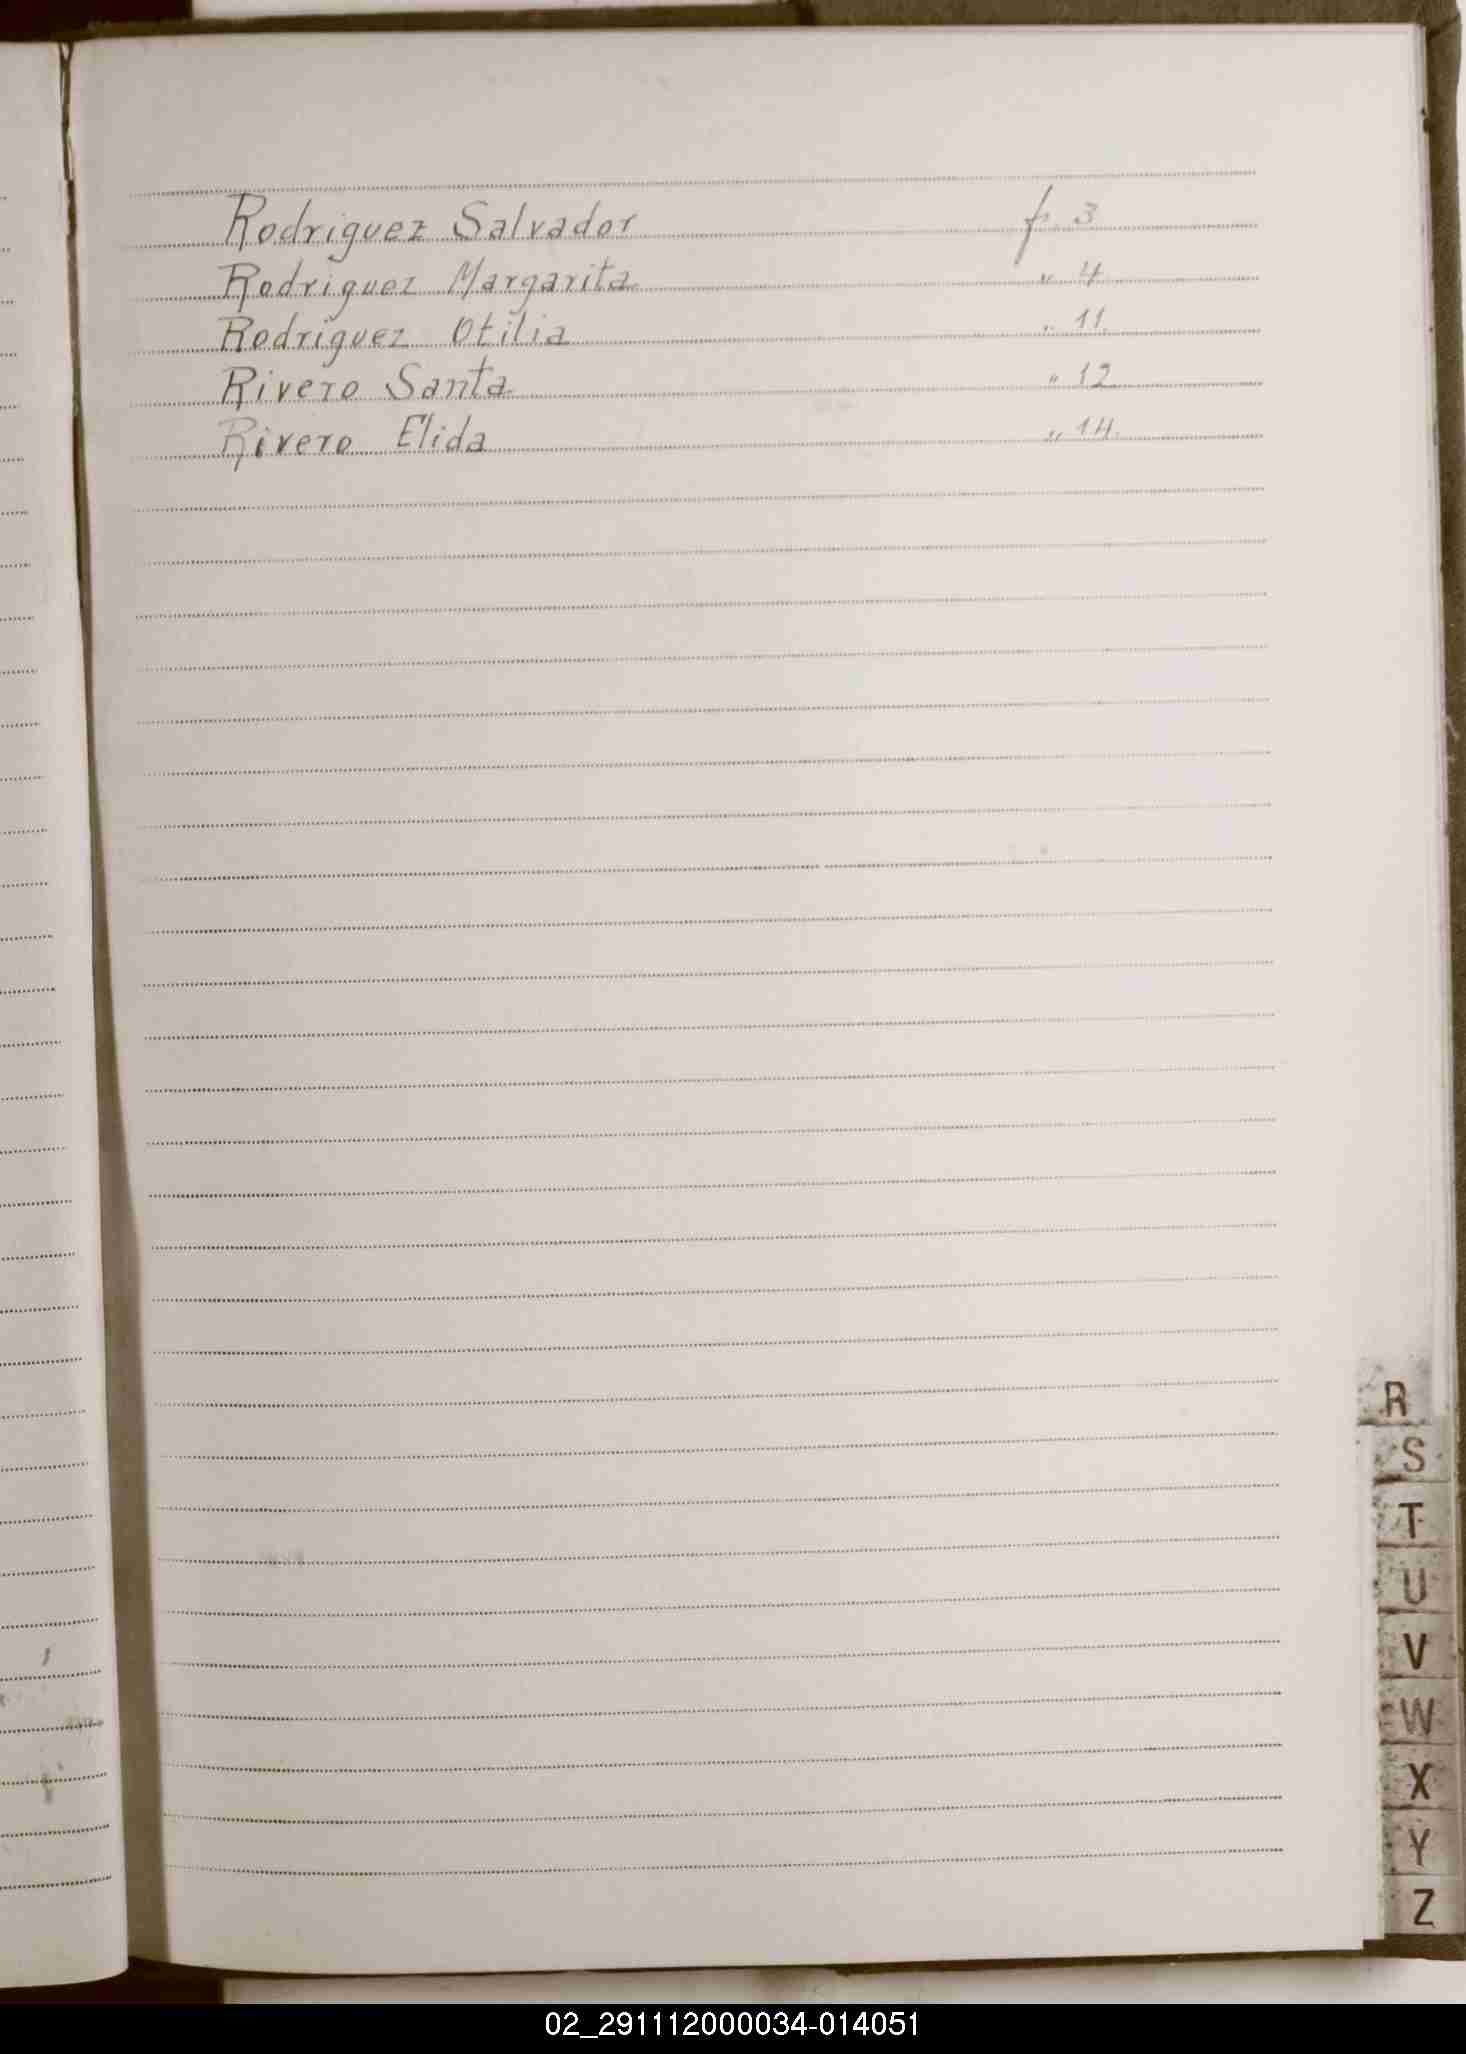 Rodriguez Salvador f. 3
Rodriguez Margarita " 4
Rodriguez Otilia " 11
Rivero Santa " 12
Rivero Elida " 14.
R
S
T
U
V
W
X
Y
Z
02_291112000034-014051